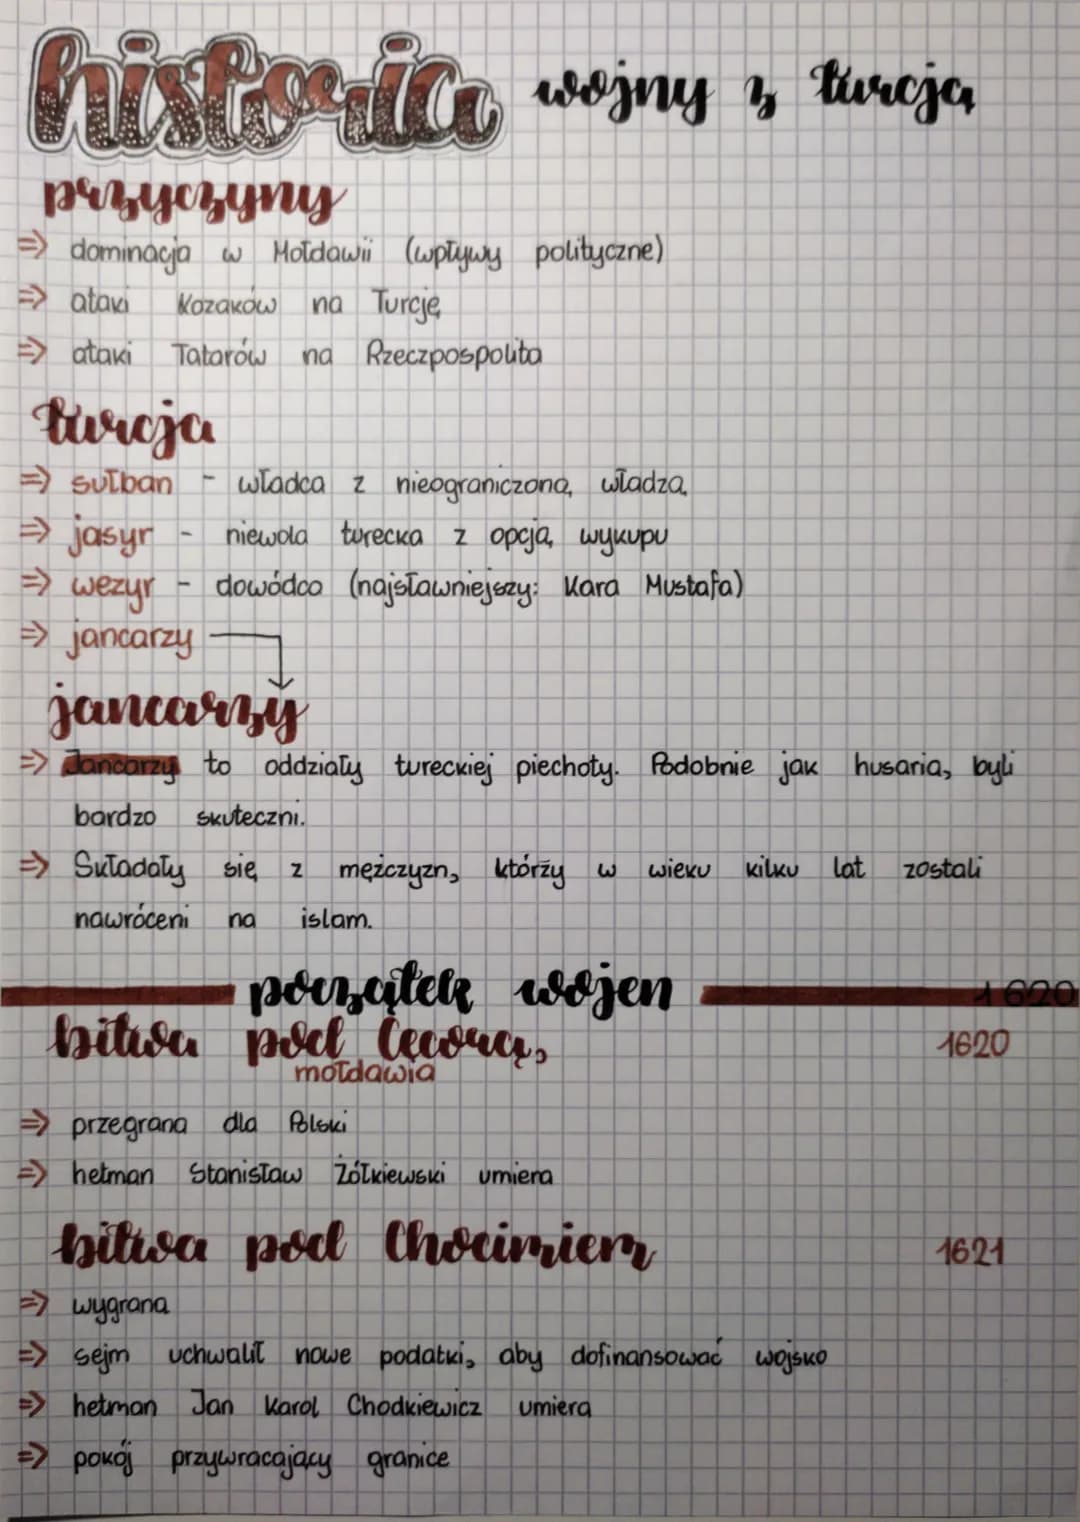 historia wojny z turcją
przyczyny
⇒ dominacja w Mołdawii (wpływy polityczne)
⇒ ataki Kozaków na Turcję
⇒ ataki Tatarów na Rzeczpospolita
turcja
⇒ sułtan - władca z nieograniczoną władzą
⇒ jasyr - niewola turecka z opcją wykupu
⇒ wezyr - dowódca (najsławniejszy: Kara Mustafa)
⇒ jancarzy
jancarzy
⇒ Jancarzy to oddziały tureckiej piechoty. Podobnie jak husaria, byli
bardzo skuteczni.
⇒ Składały się z mężczyzn, którzy w wieku kilku lat zostali
nawróceni na islam.
początek wojen 1620
bitwa pod Cecorą, 1620
mołdawia
⇒ przegrana dla Polski
⇒ hetman Stanisław Żółkiewski umiera
bitwa pod Chocimiem 1621
⇒ wygrana
⇒ sejm uchwalił nowe podatki, aby dofinansować wojsko
⇒ hetman Jan Karol Chodkiewicz umiera
⇒ pokój przywracający granice